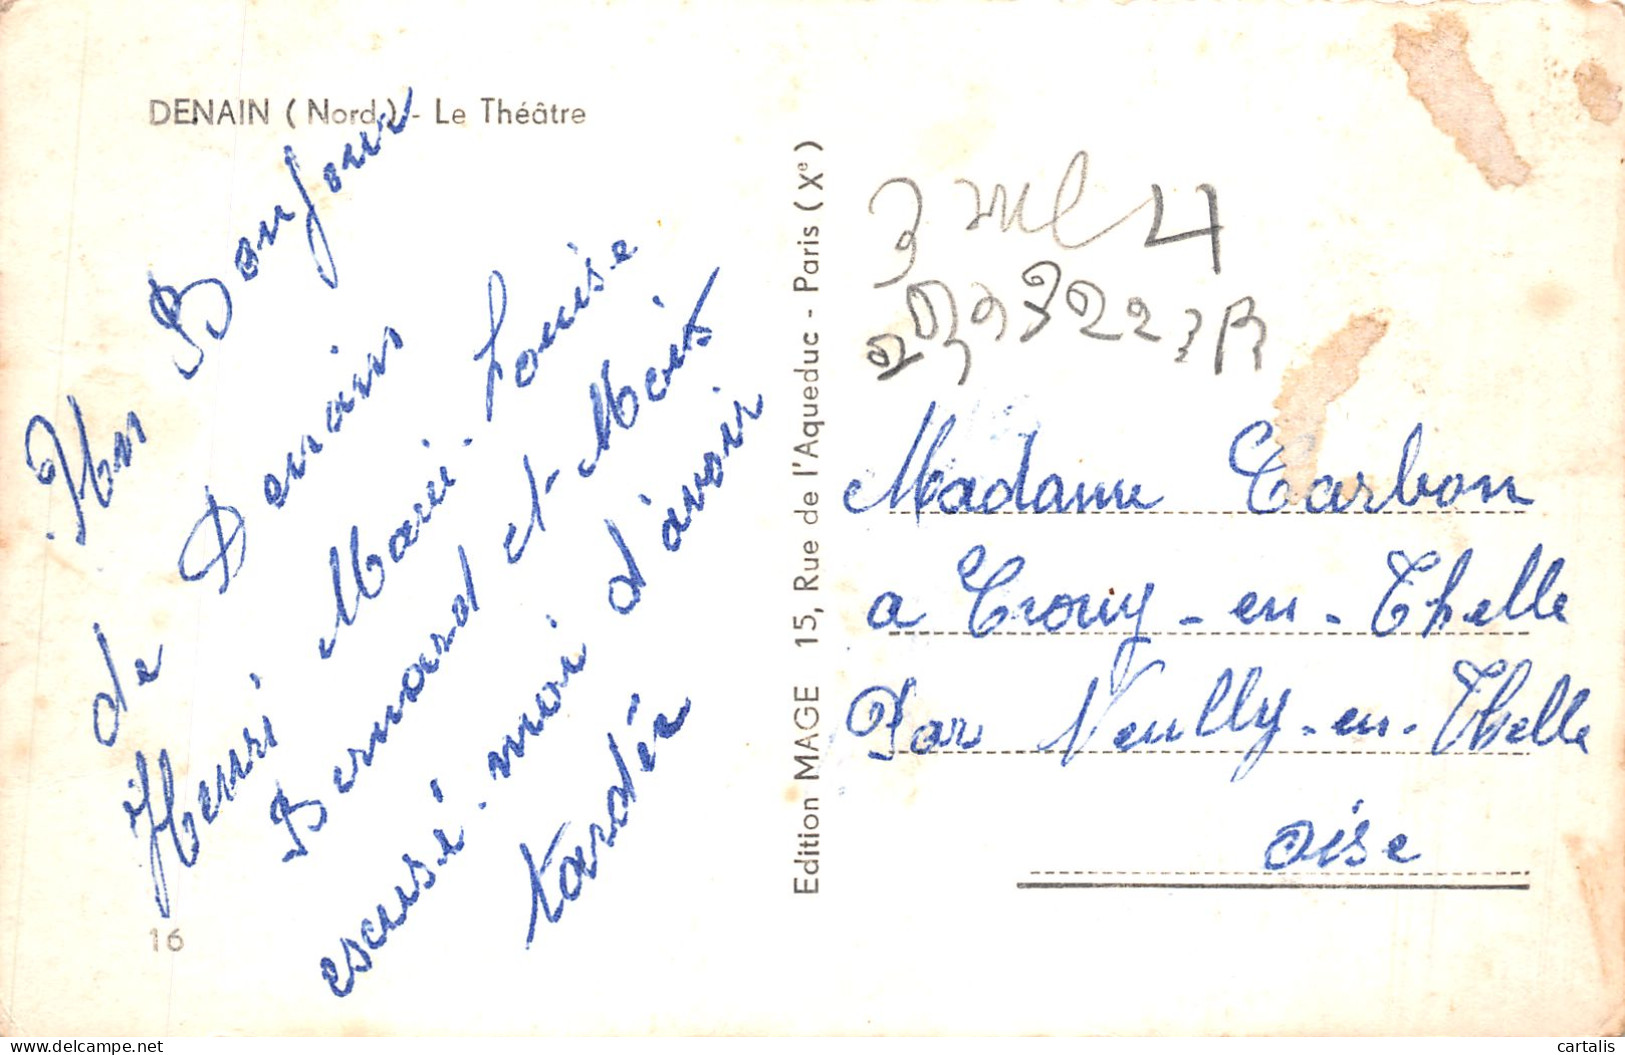 DENAIN (Nord) - Le Théâtre
Un Bonjour
de Denain
Henri Marie-Louise
Bernard et Moit
escusé-moi d'avoir
tardér
16
Edition MAGE 15, Rue de l'Aqueduc - Paris (Xe)
3 4
Madame Carbon
a Crouy-en-Thelle
Par Neully-en-Thelle
oise
cartalis
delcampe.net